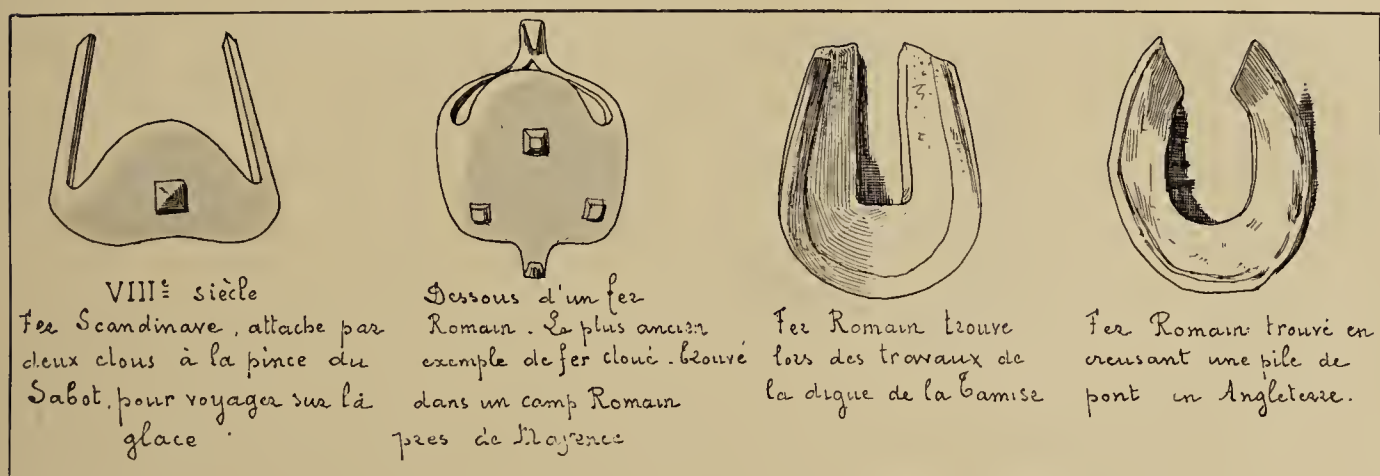 VIIIe siècle
Fer Scandinave, attache par
deux clous à la pince du
Sabot, pour voyager sur la
glace.
Dessous d'un fer
Romain. Le plus ancien
exemple de fer cloué. trouvé
dans un camp Romain
pres de Mayence
Fer Romain trouve
lors des travaux de
la digue de la Tamise
Fer Romain trouvé en
creusant une pile de
pont en Angleterre.